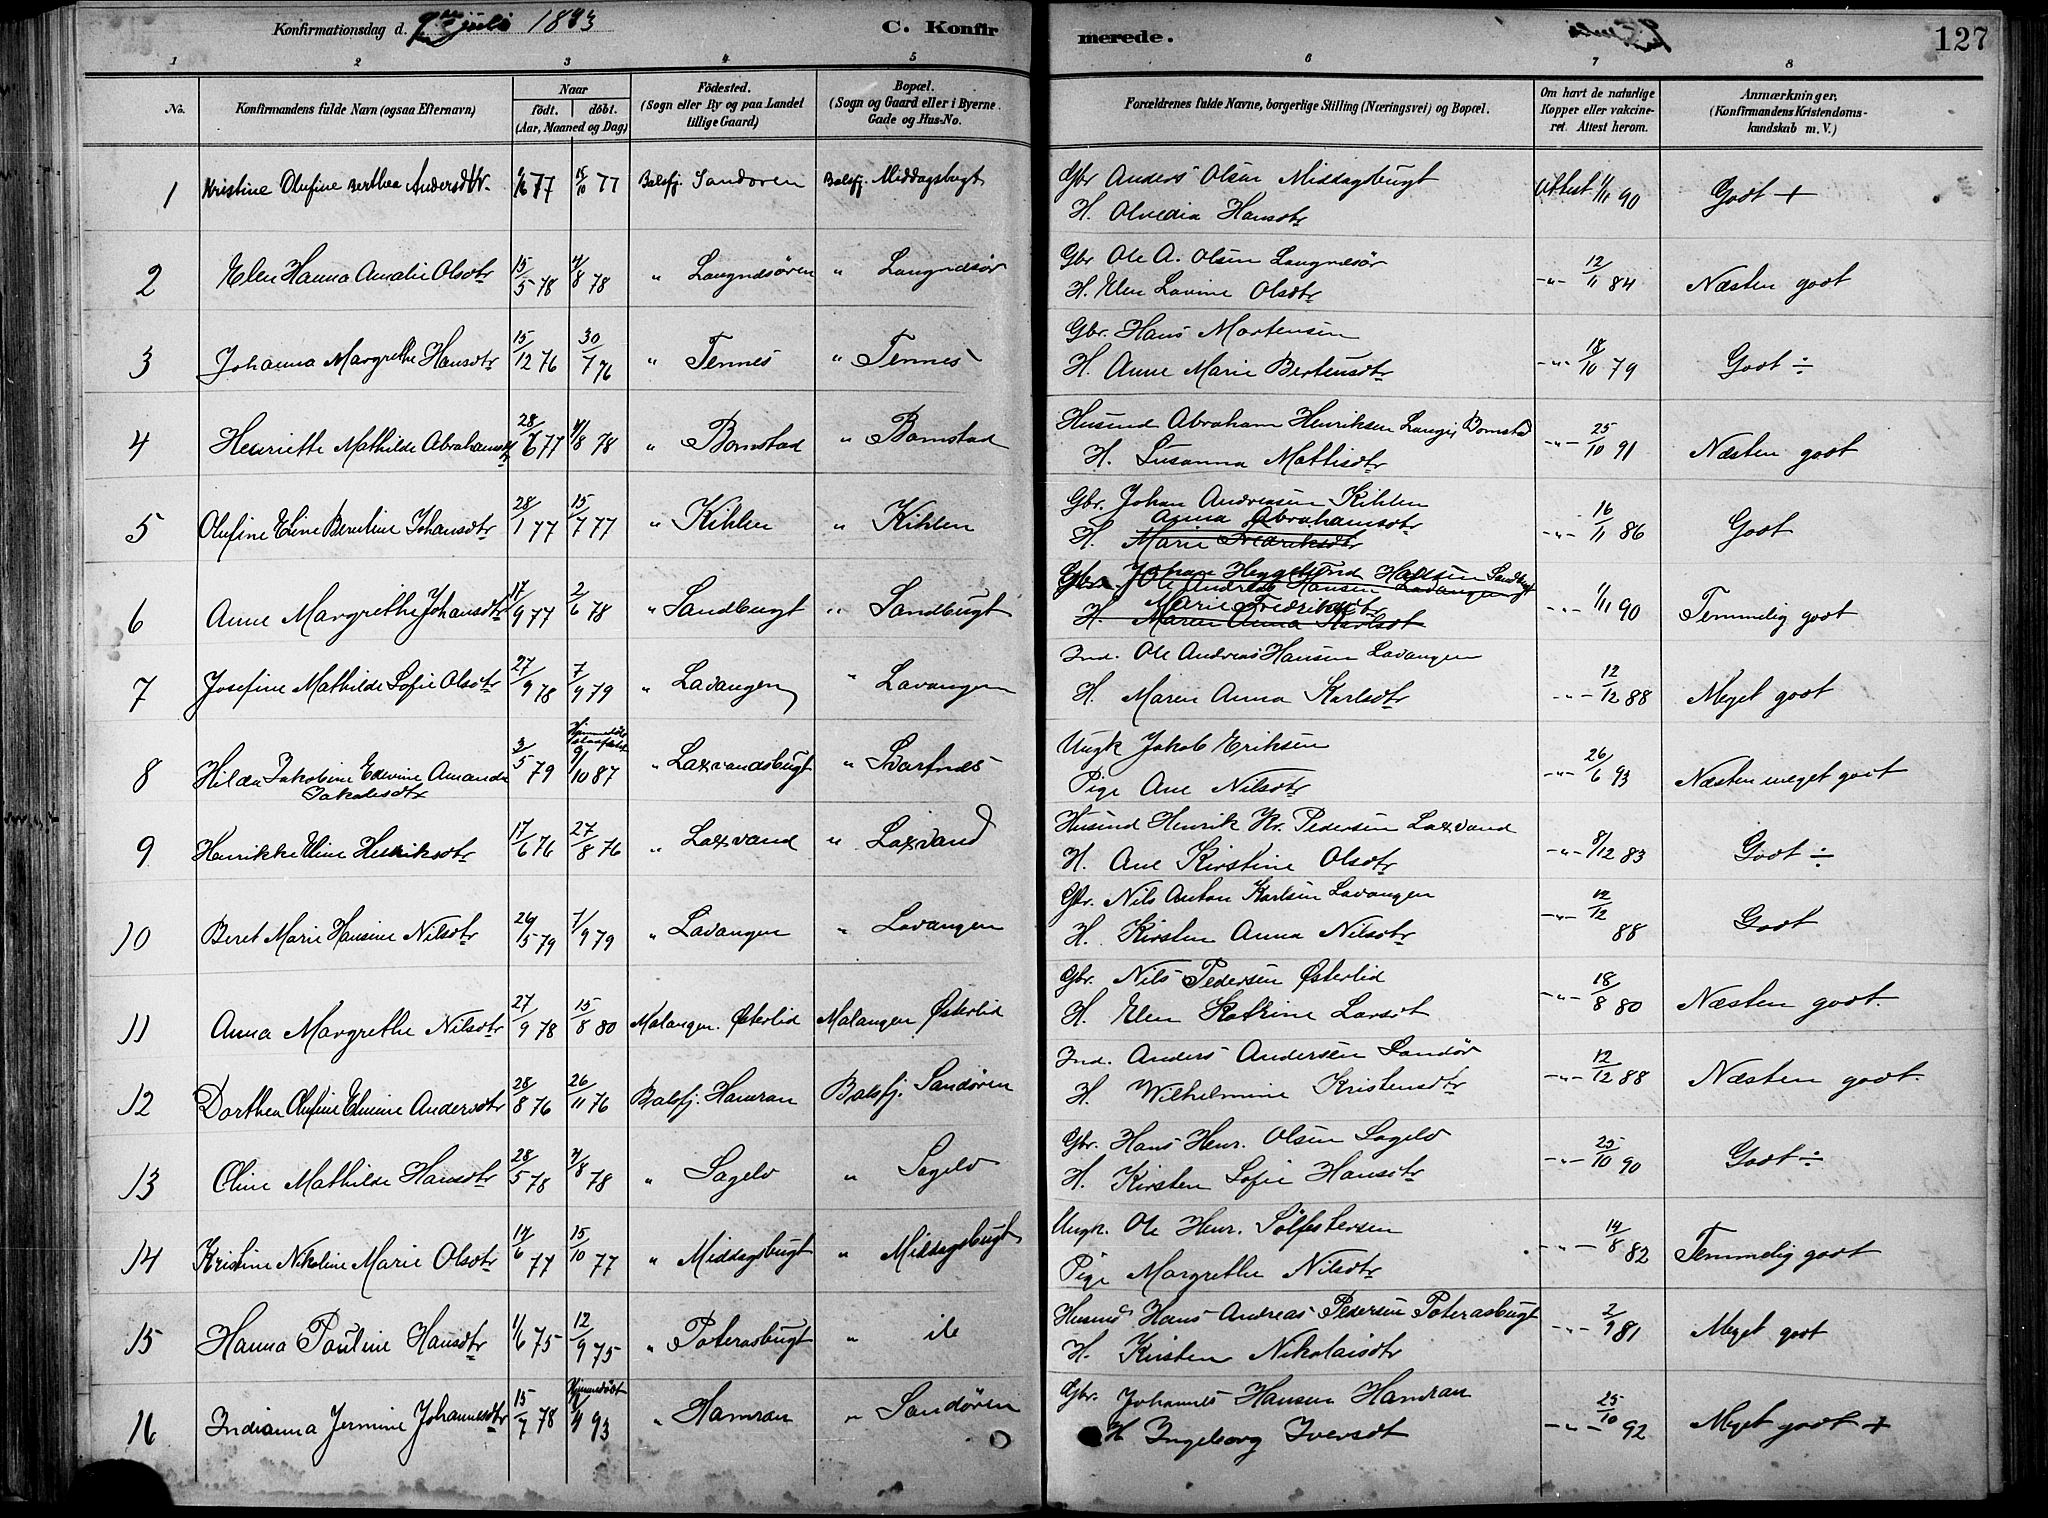 Konfirmationsdag d. 9de juli 1893 C. Konfirmerede. 127
1 2 3 4 5 6 7 8
No. Konfirmandens fulde Navn (ogsaa Efternavn) Naar født. døbt. (Aar, Maaned og Dag) Fødested. (Sogn eller By og paa Landet tillige Gaard) Bopæl. (Sogn og Gaard eller i Byerne Gade og Hus-No. Forældrenes fulde Navne, borgerlige Stilling (Næringsvei) og Bopæl. Om havt de naturlige Kopper eller vakcineret. Attest herom. Anmærkninger, (Konfirmandens Kristendomskundskab m. V.)
1 Kristine Olufine Berthea Andersdtr. 77 15/10 77 Balsfj. Sandøren Balsfj. Middagsbugt Gbr Anders Olsen Middagsbugt Attest 1/11 90 Godt +
H. Olvedia Hansdtr
2 Elen Hanna Amalie Olsdtr 15/5 78 4/8 78 " Langndsøren " Langndsør Gbr Ole A. Olsen Langnesør -"- 12/11 84 Næsten godt
H. Elen Lavine Olsdtr
3 Johanna Margrethe Hansdtr 15/12 76 30/7 76 " Tennes " Tennes Gbr. Hans Mortensen -"- 18/10 79 Godt ÷
H. Anne Marie Bertensdtr
4 Henriette Mathilde Abrahamsdtr 28/6 77 4/8 78 " Bomstad " Bomstad Husmd Abraham Henriksen Bomstad -"- 25/10 91 Næsten godt
H. Susanna Mattisdtr
5 Olufine Eline Berntine Johansdtr 28/1 77 15/7 77 " Kihlen " Kihlen Gbr. Johan Andreasen Kihlen -"- 16/11 86 Godt
Anna Abrahamsdtr
H. Marie Fredriksdtr
6 Anne Margrethe Johansdtr 17/9 77 2/6 78 " Sandbugt " Sandbugt Gbr. Johan Heggelund Hansen Sandbugt -"- 1/11 90 Temmelig godt
Ole Andreas Hansen Lavangen
Marie Fredriksdtr
H. Maren Anna Karlsdt
7 Josefine Mathilde Sofie Olsdtr 27/9 78 7/9 79 " Lavangen " Lavangen Ind. Ole Andreas Hansen Lavangen -"- 12/12 88 Meget godt
H. Maren Anna Karlsdtr
8 Hilda Jakobine Edevine Amanda Jakobsdtr 3/5 79 Hjemmedøbt 9/10 87 " Laxvandsbugt " Svartnes Ungk Jakob Eriksen -"- 26/6 93 Næsten meget godt
Pige Ane Nilsdtr
9 Henrikke Eline Henriksdtr 17/6 76 27/8 76 " Laxvand " Laxvand Husmd Henrik Kr. Pedersen Laxvand -"- 8/12 83 Godt ÷
H. Ane Kirstine Olsdtr
10 Beret Marie Hansine Nilsdtr 26/5 79 7/9 79 " Lavangen " Lavangen Gbr. Nils Anton Karlsen Lavangen -"- 12/12 88 Godt
H. Kirsten Anna Nilsdtr
11 Anna Margrethe Nilsdtr 27/9 78 15/8 80 Malangen. Østerlid Malangen Østerlid Gbr. Nils Pedersen Østerlid -"- 18/8 80 Næsten godt.
H. Elen Katrine Larsdt
12 Dorthea Olufine Elmine Andersdtr 28/8 76 26/11 76 Balsfj. Hamran Balsfj. Sandøren Ind. Anders Andersen Sandør -"- 12/12 88 Næsten godt.
H. Wilhelmine Kristensdtr
13 Oline Mathilde Hansdtr 28/5 78 4/8 78 " Sagelv " Sagelv Gbr. Hans Henr. Olsen Sagelv -"- 25/10 90 Godt ÷
H. Kirsten Sofie Hansdtr
14 Kristine Nikoline Marie Olsdtr 17/6 77 15/10 77 " Middagsbugt " Middagsbugt Ungk. Ole Henr. Sølfestersen -"- 14/8 82 Temmelig godt
Pige Margrethe Nilsdtr
15 Hanna Pauline Hansdtr 11/6 75 12/9 75 " Poterasbugt " Husmd Hans Andreas Pedersen Poterasbugt -"- 2/9 81 Meget godt
H. Kirsten Nikolaisdtr
16 Indianna Jermine Johannesdtr 15/7 78 Hjemmedøbt 93 " Hamran " Sandøren Gbr. Johannes Hansen Hamran -"- 25/10 92 Meget godt +
H Ingeborg Iversdt